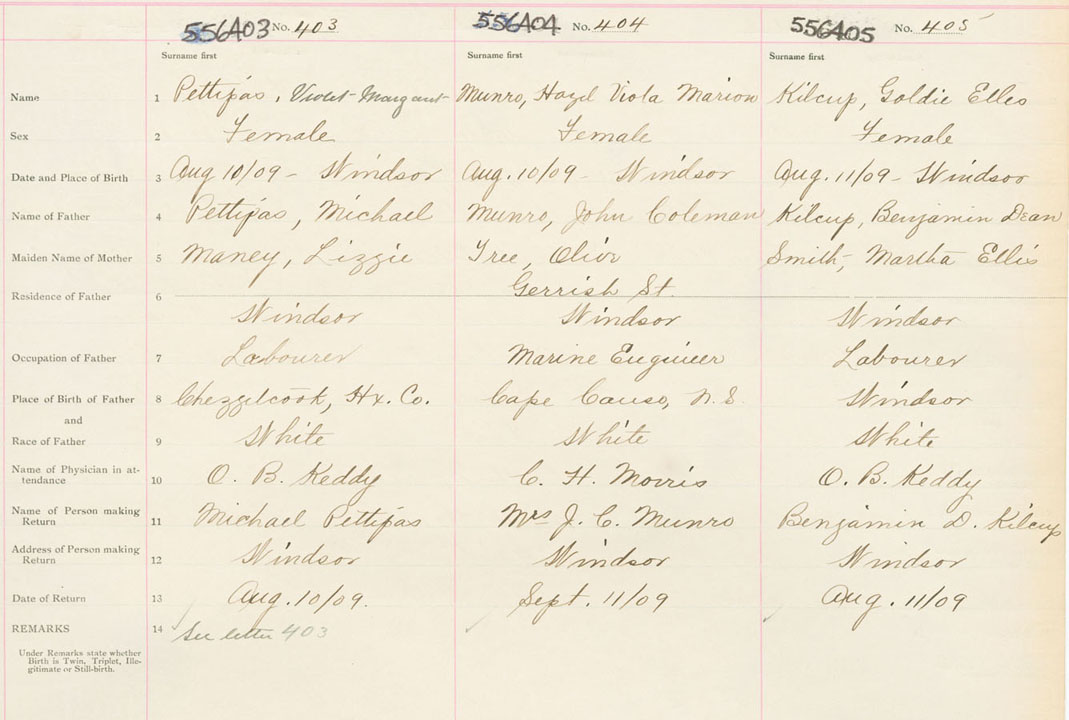 556403 No. 403 556404 No. 404 556405 No. 405
Surname first Surname first Surname first
Name 1 Pettipas, Violet Margaret Munro, Hazel Viola Marion Kilcup, Goldie Elles
Sex 2 Female Female Female
Date and Place of Birth 3 Aug 10/09 - Windsor Aug. 10/09 - Windsor Aug. 11/09 - Windsor
Name of Father 4 Pettipas, Michael Munro, John Coleman Kilcup, Benjamin Dean
Maiden Name of Mother 5 Maney, Lizzie Tree, Olive Smith, Martha Ellis
Gerrish St.
Residence of Father 6 Windsor Windsor Windsor
Occupation of Father 7 Labourer Marine Engineer Labourer
Place of Birth of Father 8 Chezzetcook, Hx. Co. Cape Canso, N.S. Windsor
and
Race of Father 9 White White White
Name of Physician in at-
tendance 10 O. B. Keddy C. H. Morris O. B. Keddy
Name of Person making
Return 11 Michael Pettipas Mrs J. C. Munro Benjamin D. Kilcup
Address of Person making
Return 12 Windsor Windsor Windsor
Date of Return 13 Aug. 10/09. Sept. 11/09 Aug. 11/09
REMARKS 14 See letter 403
Under Remarks state whether
Birth is Twin, Triplet, Ille-
gitimate or Still-birth.